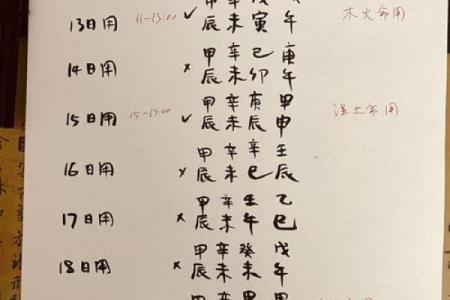 13日用 11-13:00 ✓ 辰未寅午 木火命用
甲辛己庚
14日用 × 辰未卯午
甲辛庚甲
15日用 15-17:00 ✓ 辰未辰申 湿土命用
甲辛辛壬
16日用 × 辰未巳辰
甲辛壬乙
17日用 × 辰未午巳
甲辛癸戊
18日用 × 辰未未午